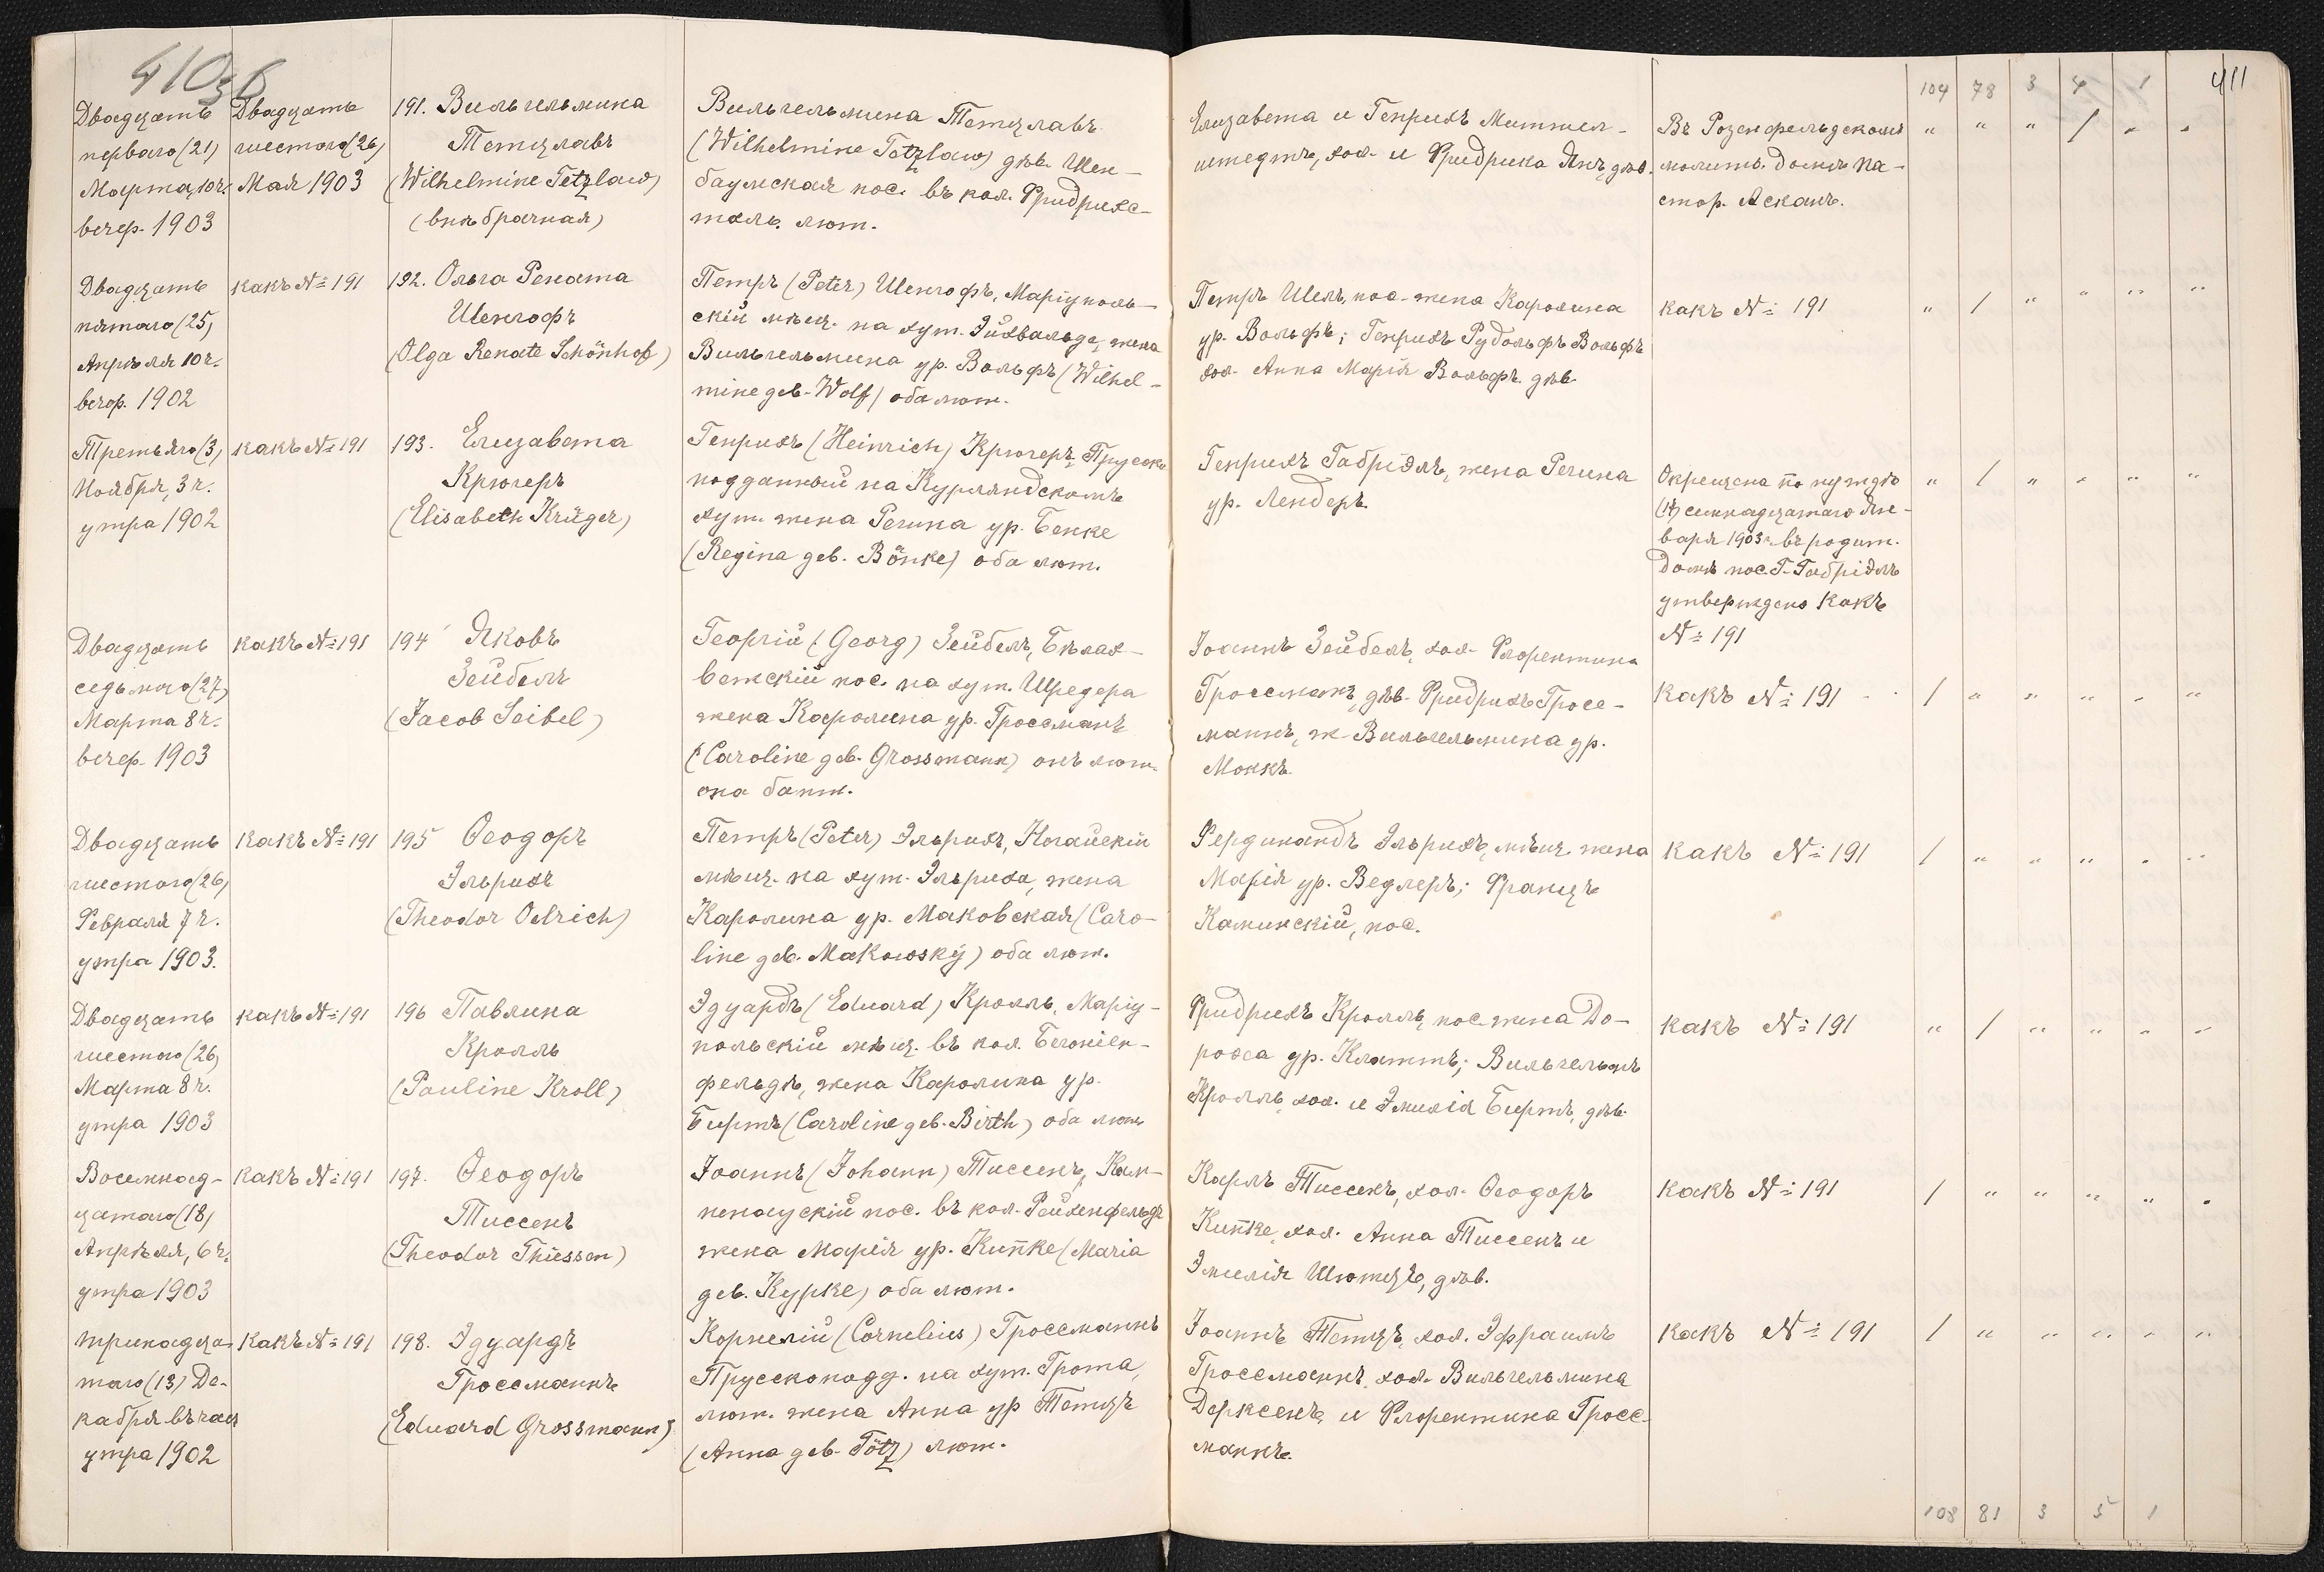 410
411
104 78 3 4 1
Двадцать
перваго (21)
Марта, 10 ч.
вечер. 1903
Двадцать
шестого (26)
Мая 1903
191. Вильгельмина
Тетцлавъ
(Wilhelmine Tetzlaw)
(внѣбрачная)
Вильгельмина Тетцлавъ
(Wilhelmine Tetzlaw) дѣв. Шен-
баумская пос. въ кол. Фридрихс-
таль. лют.
Елизавета и Генрихъ Миттел-
штедтъ, хол. и Фридрика Янъ, дѣв.
Въ Розенфельдскомъ
молитв. домѣ па-
стор. Асканъ.
" " " / " "
Двадцать
пятаго (25)
Апрѣля 10 ч.
вечер. 1902
какъ № 191
192. Ольга Рената
Шенгофъ
(Olga Renate Schönhof)
Петръ (Peter) Шенгофъ, Маріуполь-
скій мѣщ. на хут. Эйхвальда, жена
Вильгельмина ур. Вольфъ (Wilhel-
mine geb. Wolf) оба лют.
Петръ Шель, пос. жена Каролина
ур. Вольфъ; Генрихъ Рудольфъ Вольфъ
хол. Анна Марія Вольфъ дѣв.
какъ № 191
" / " " " "
Третьяго (3)
Ноября, 3 ч.
утра 1902
какъ № 191
193. Елизавета
Крюгеръ
(Elisabeth Krüger)
Генрихъ (Heinrich) Крюгеръ, Прусск.
подданный на Курляндскомъ
хут. жена Регина ур. Бенке
(Regina geb. Bönke) оба лют.
Генрихъ Габріэль, жена Регина
ур. Лендеръ.
Окрещена по нуждѣ
(17) семнадцатаго Ян-
варя 1903 г. въ родит.
домѣ пос. Г. Габріэль
утверждено какъ
№ 191
" / " " " "
Двадцать
седьмого (27)
Марта 8 ч.
вечер. 1903
какъ № 191
194 Яковъ
Зейбель
(Jacob Seibel)
Георгій (Georg) Зейбель,
пос. на хут. Шредера
жена Каролина ур. Гроссманъ
(Caroline geb. Grossmann) онъ лют.
она бапт.
Іоаннъ Зейбель, хол. Флорентина
Гроссманъ, дѣв. Фридрихъ Гросс-
маннъ, ж. Вильгельмина ур.
Монкъ.
какъ № 191
/ " " " " "
Двадцать
шестого (26)
Февраля 7 ч.
утра 1903.
какъ № 191
195 Ѳеодоръ
Эльрихъ
(Theodor Oelrich)
Петръ (Peter) Эльрихъ, Ногайскій
мѣщ. на хут. Эльриха, жена
Каролина ур. Маковская (Caro-
line geb. Makowsky) оба лют.
Фердинандъ Эльрихъ, мѣщ. жена
Марія ур. Ведлеръ; Францъ
Каминскій, пос.
какъ № 191
/ " " " " "
Двадцать
шестого (26)
Марта 8 ч.
утра 1903
какъ № 191
196 Павлина
Кролль
(Pauline Kroll)
Эдуардъ (Eduard) Кролль, Маріу-
польскій мѣщ. въ кол.
фельдъ, жена Каролина ур.
Биртъ (Caroline geb. Birth) оба лют.
Фридрихъ Кролль, пос. жена До-
роѳеа ур. Клаттъ; Вильгельмъ
Кролль, хол. и Эмилія Биртъ, дѣв.
какъ № 191
" / " " " "
Восемнад-
цатаго (18)
Апрѣля, 6 ч.
утра 1903
какъ № 191
197. Ѳеодоръ
Тиссенъ
(Theodor Thiessen)
Іоаннъ (Johann) Тиссенъ, Кам-
пенаускій пос. въ кол. Рейхенфельдъ
жена Марія ур. Кипке (Maria
geb. ) оба лют.
Карлъ Тиссенъ, хол. Ѳеодоръ
Кипке, хол. Анна Тиссенъ и
Эмилія Шютцъ, дѣв.
какъ № 191
/ " " " " "
Тринадца-
таго (13) Де-
кабря въ
утра 1902
какъ № 191
198. Эдуардъ
Гроссманнъ
(Eduard Grossmann)
Корнелій (Cornelius) Гроссманнъ
Прусскоподд. на хут. Грота,
лют. жена Анна ур Тетцъ
(Anna geb. Tötz) лют.
Іоаннъ Тетцъ, хол. Эфраимъ
Гроссманнъ, хол. Вильгельмина
Дерксенъ, и Флорентина Гросс-
маннъ.
какъ № 191
/ " " " " "
108 81 3 5 1